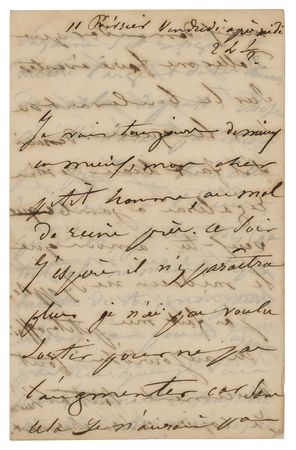 11 Février Vendredi après midi
2 h ½
Je vais toujours de mieux
en mieux mon cher
petit homme, au mal
de reins près. Ce soir
j'espère il n'y paraîtra
plus je n'ai pas voulu
sortir pour ne pas
l'augmenter car sans
cela je n'aurais pas